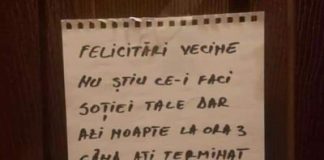 FELICITĂRI VECINE
NU ȘTIU CE-I FACI
SOȚIEI TALE DAR
AZI NOAPTE LA ORA 3
CÂND AȚI TERMINAT